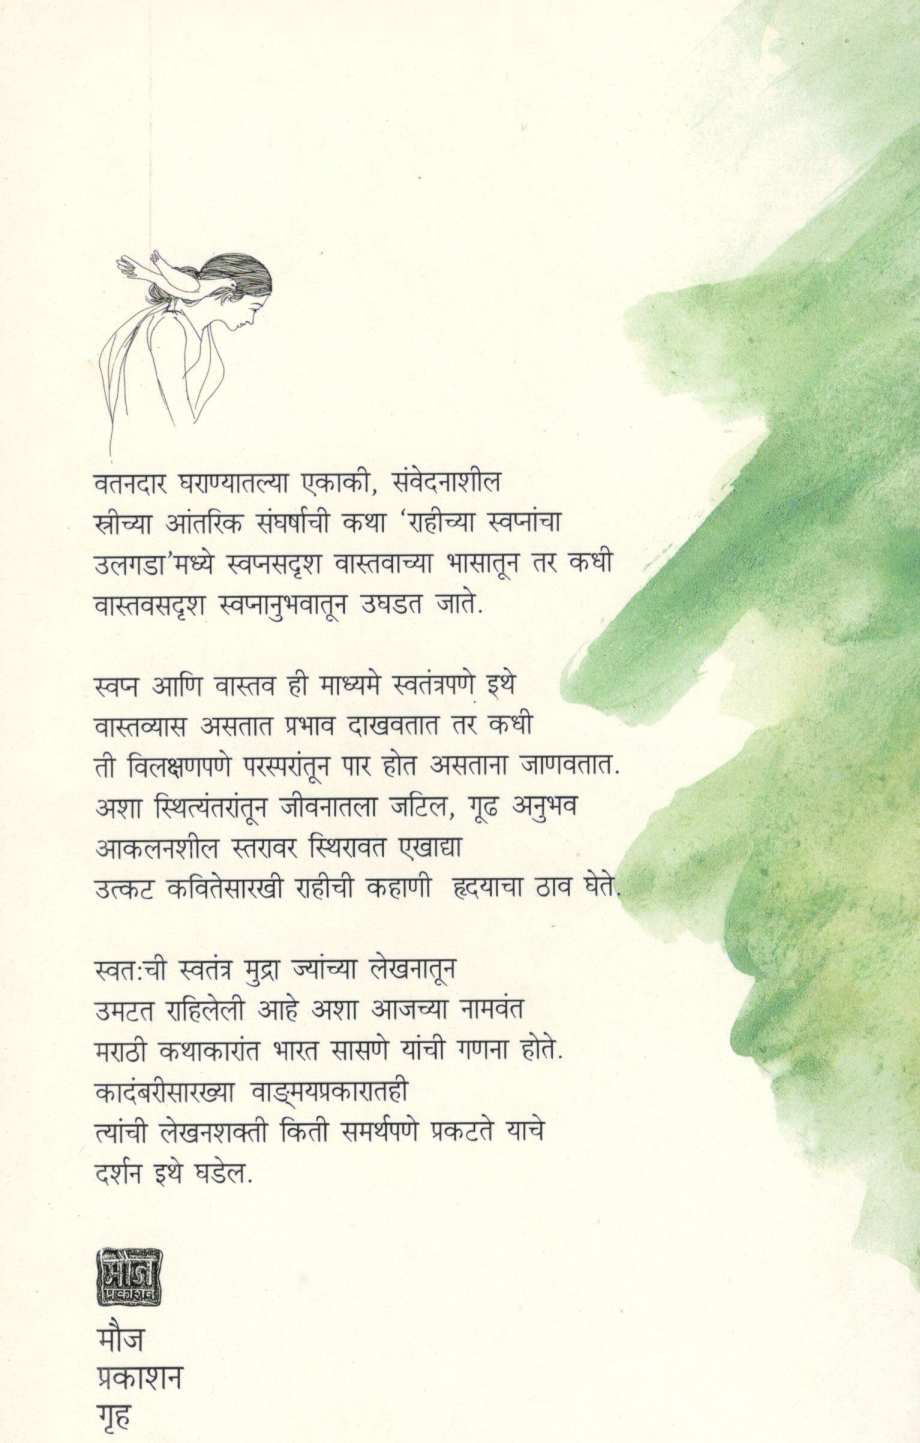 वतनदार घराण्यातल्या एकाकी, संवेदनाशील
स्त्रीच्या आंतरिक संघर्षाची कथा ‘राहीच्या स्वप्नांचा
उलगडा’मध्ये स्वप्नसदृश वास्तवाच्या भासातून तर कधी
वास्तवसदृश स्वप्नानुभवातून उघडत जाते.
स्वप्न आणि वास्तव ही माध्यमे स्वतंत्रपणे इथे
वास्तव्यास असतात प्रभाव दाखवतात तर कधी
ती विलक्षणपणे परस्परांतून पार होत असताना जाणवतात.
अशा स्थित्यंतरांतून जीवनातला जटिल, गूढ अनुभव
आकलनशील स्तरावर स्थिरावत एखाद्या
उत्कट कवितेसारखी राहीची कहाणी हृदयाचा ठाव घेते.
स्वतःची स्वतंत्र मुद्रा ज्यांच्या लेखनातून
उमटत राहिलेली आहे अशा आजच्या नामवंत
मराठी कथाकारांत भारत सासणे यांची गणना होते.
कादंबरीसारख्या वाङ्मयप्रकारातही
त्यांची लेखनशक्ती किती समर्थपणे प्रकटते याचे
दर्शन इथे घडेल.
मौज
प्रकाशन
मौज
प्रकाशन
गृह